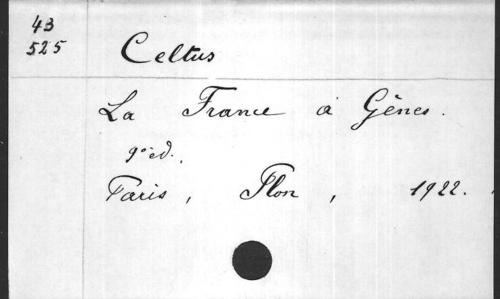 43
525
Celtus
La France à Gênes.
9º éd.
Paris, Plon, 1922.